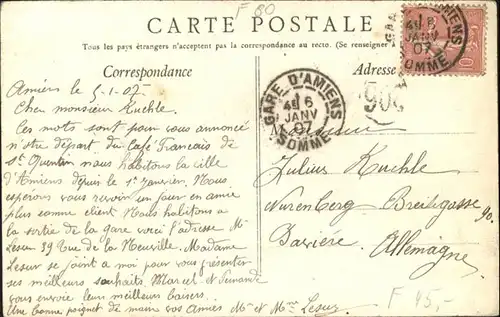 F 80
CARTE POSTALE
Tous les pays étrangers n'acceptent pas la correspondance au recto. (Se renseigner
Correspondance
Adresse
GARE D'AMIENS
4E 6
JANV
07
SOMME
GARE D'AMIENS
4E 6
JANV
07
SOMME
10
Amiens le 5-1-07
Cher monsieur Kuehle.
Ces mots sont pour vous annoncé
notre départ du Café Francais de
St Quentin nous habitons la ville
d'Amiens depuis le 1er Janvier. Nous
espérons vous revoir un jour en amie
plus somme client Nous habitons a
la sortie de la gare voici l'adresse Mr
Lesur 39 Rue de la Neuville. Madame
Lesur se joint a moi pour vous présenter
ses meilleurs souhaits Marcel et Fernande
vous envoie leur meilleurs baisers
Une bonne poignet de main vos Amies Mr et Mme Lesur
Monsieur
Julius Kuehle
Nurenberg Breitegasse
90.
Bavière
Allemagne
F 15,-